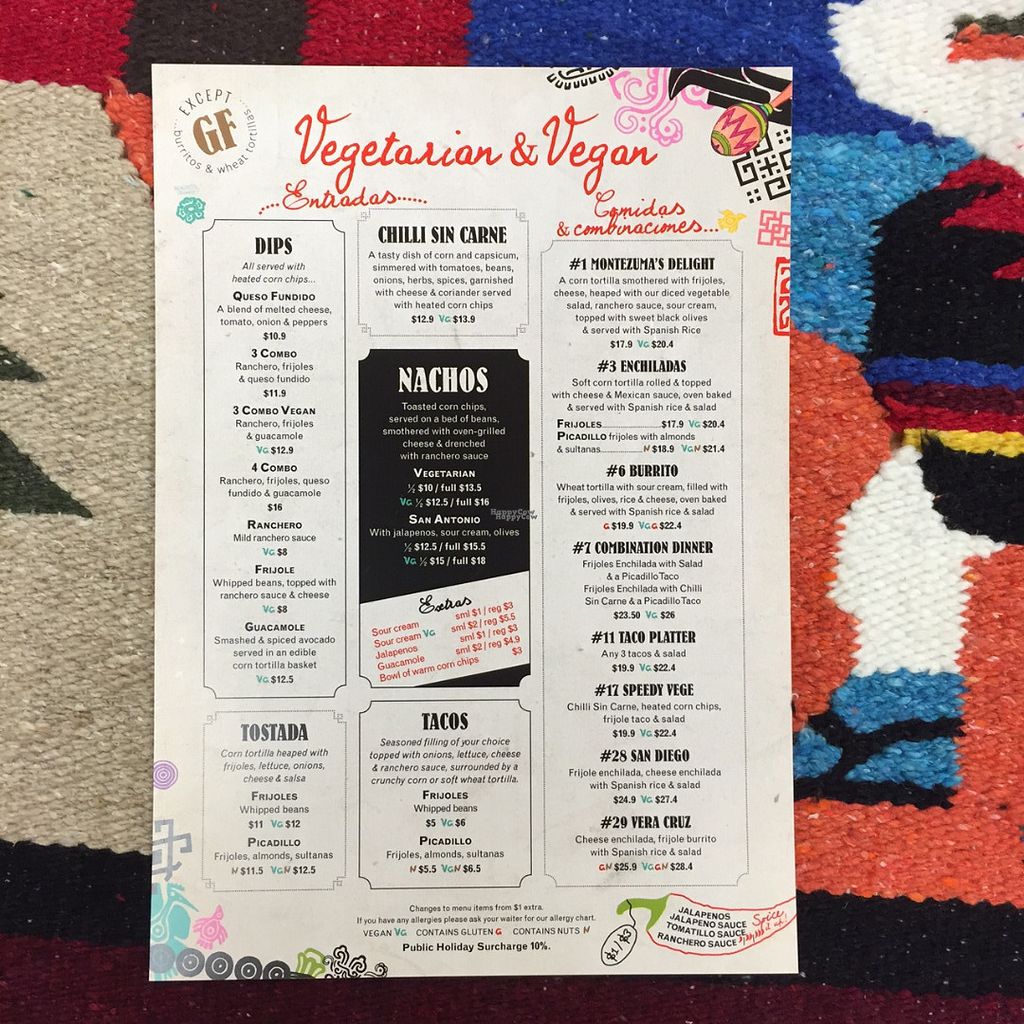 EXCEPT
GF
...burritos & wheat tortillas...
Vegetarian & Vegan
....Entradas......
DIPS
All served with
heated corn chips...
QUESO FUNDIDO
A blend of melted cheese,
tomato, onion & peppers
$10.9
3 COMBO
Ranchero, frijoles
& queso fundido
$11.9
3 COMBO VEGAN
Ranchero, frijoles
& guacamole
VG $12.9
4 COMBO
Ranchero, frijoles, queso
fundido & guacamole
$16
RANCHERO
Mild ranchero sauce
VG $8
FRIJOLE
Whipped beans, topped with
ranchero sauce & cheese
VG $8
GUACAMOLE
Smashed & spiced avocado
served in an edible
corn tortilla basket
VG $12.5
TOSTADA
Corn tortilla heaped with
frijoles, lettuce, onions,
cheese & salsa
FRIJOLES
Whipped beans
$11 VG $12
PICADILLO
Frijoles, almonds, sultanas
N $11.5 VGN $12.5
CHILLI SIN CARNE
A tasty dish of corn and capsicum,
simmered with tomatoes, beans,
onions, herbs, spices, garnished
with cheese & coriander served
with heated corn chips
$12.9 VG $13.9
NACHOS
Toasted corn chips,
served on a bed of beans,
smothered with oven-grilled
cheese & drenched
with ranchero sauce
VEGETARIAN
½ $10 / full $13.5
VG ½ $12.5 / full $16
SAN ANTONIO
With jalapenos, sour cream, olives
½ $12.5 / full $15.5
VG ½ $15 / full $18
HappyCow
HappyCow
Extras
Sour cream sml $1 / reg $3
Sour cream VG sml $2 / reg $5.5
Jalapenos sml $1 / reg $3
Guacamole sml $2 / reg $4.9
Bowl of warm corn chips $3
TACOS
Seasoned filling of your choice
topped with onions, lettuce, cheese
& ranchero sauce, surrounded by a
crunchy corn or soft wheat tortilla.
FRIJOLES
Whipped beans
$5 VG $6
PICADILLO
Frijoles, almonds, sultanas
N $5.5 VGN $6.5
Comidas
& combinaciones...
#1 MONTEZUMA'S DELIGHT
A corn tortilla smothered with frijoles,
cheese, heaped with our diced vegetable
salad, ranchero sauce, sour cream,
topped with sweet black olives
& served with Spanish Rice
$17.9 VG $20.4
#3 ENCHILADAS
Soft corn tortilla rolled & topped
with cheese & Mexican sauce, oven baked
& served with Spanish rice & salad
FRIJOLES..................$17.9 VG $20.4
PICADILLO frijoles with almonds
& sultanas..................N $18.9 VGN $21.4
#6 BURRITO
Wheat tortilla with sour cream, filled with
frijoles, olives, rice & cheese, oven baked
& served with Spanish rice & salad
G $19.9 VGG $22.4
#7 COMBINATION DINNER
Frijoles Enchilada with Salad
& a Picadillo Taco
Frijoles Enchilada with Chilli
Sin Carne & a Picadillo Taco
$23.50 VG $26
#11 TACO PLATTER
Any 3 tacos & salad
$19.9 VG $22.4
#17 SPEEDY VEGE
Chilli Sin Carne, heated corn chips,
frijole taco & salad
$19.9 VG $22.4
#28 SAN DIEGO
Frijole enchilada, cheese enchilada
with Spanish rice & salad
$24.9 VG $27.4
#29 VERA CRUZ
Cheese enchilada, frijole burrito
with Spanish rice & salad
GN $25.9 VGGN $28.4
Changes to menu items from $1 extra.
If you have any allergies please ask your waiter for our allergy chart.
VEGAN VG CONTAINS GLUTEN G CONTAINS NUTS N
Public Holiday Surcharge 10%.
$1/$3
JALAPENOS
JALAPENO SAUCE
TOMATILLO SAUCE
RANCHERO SAUCE
Spice